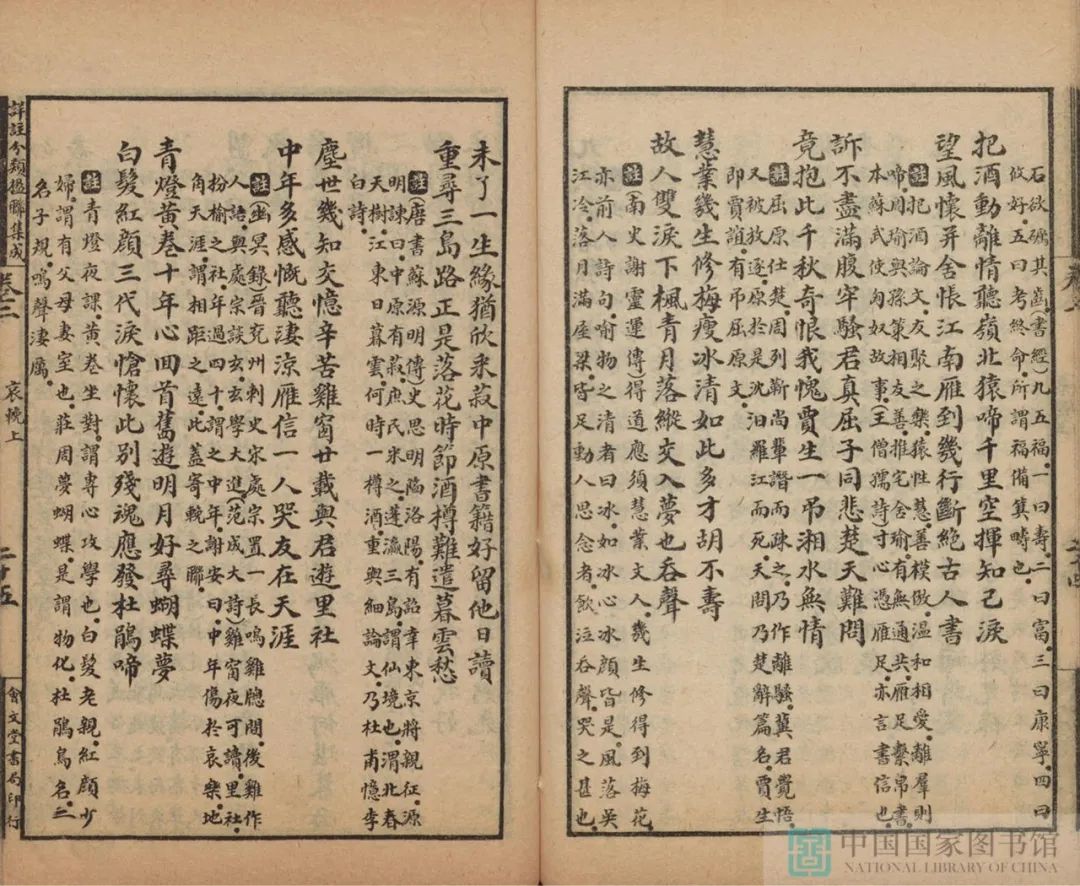 石欲礪其齒(書經)九五福一曰壽二曰富三曰康寧四曰
攸好五曰考終命所謂福備箕疇也
把酒動離情聽嶺北猿啼千里空揮知己淚
望風懷并舍悵江南雁到幾行斷絕古人書
註把酒論文友聚之樂猿性慧善模倣溫和相愛離羣則
啼周瑜與孫策相友善推宅舍瑜有無通共雁足繫帛書
本蘇武使匈奴故事王僧孺詩寸心憑雁足亦言書信也
訴不盡滿腹牢騷君真屈子同悲楚天難問
竟抱此千秋奇恨我愧賈生一弔湘水無情
註屈原仕楚周列靳尚輩譖而疎之乃作離騷冀君覺悟
又被放逐原於是沈汨羅江而死天問乃楚辭篇名賈生
即賈誼有弔屈原文
慧業幾生修梅瘦冰清如此多才胡不壽
故人雙淚下楓青月落縱交入夢也吞聲
註(南史謝靈運傳)得道應須慧業文人幾生修得到梅花
亦前人詩句喻物之清者曰冰如冰心冰顏皆是風落吳
江冷落月滿屋梁皆足動人思念者飲泣吞聲哭之甚也
未了一生緣猶欣采菽中原書籍好留他日讀
重尋三島路正是落花時節酒樽難遣暮雲愁
註(唐書蘇源明傳)史思明陷洛陽有詔幸東京將親征源
明諫曰中原有菽庶民采之蓬瀛三島謂仙境也渭北春
天樹江東日暮雲何時一樽酒重與細論文乃杜甫憶李
白詩
塵世幾知交憶辛苦雞窗廿載與君遊里社
中年多感慨聽淒涼雁信一人哭友在天涯
註(幽冥錄)晉兗州刺史宋處宗置一長鳴雞牕間後雞作
人語與處宗談玄玄學大進(范成大詩)雞窗夜可讀里社
枌榆之社年過四十謂之中年謝安曰中年傷於哀樂地
角天涯謂相距之遠此蓋寄輓之聯
青燈黃卷十年心回首舊遊明月好尋蝴蝶夢
白髮紅顏三代淚愴懷此別殘魂應發杜鵑啼
註青燈夜課黃卷坐對謂專心攻學也白髮老親紅顏少
婦謂有父母妻室也莊周夢蝴蝶是謂物化杜鵑鳥名三
名子規鳴聲淒厲
詳註分類楹聯集成
卷二
哀輓上
二十五
會文堂書局印行